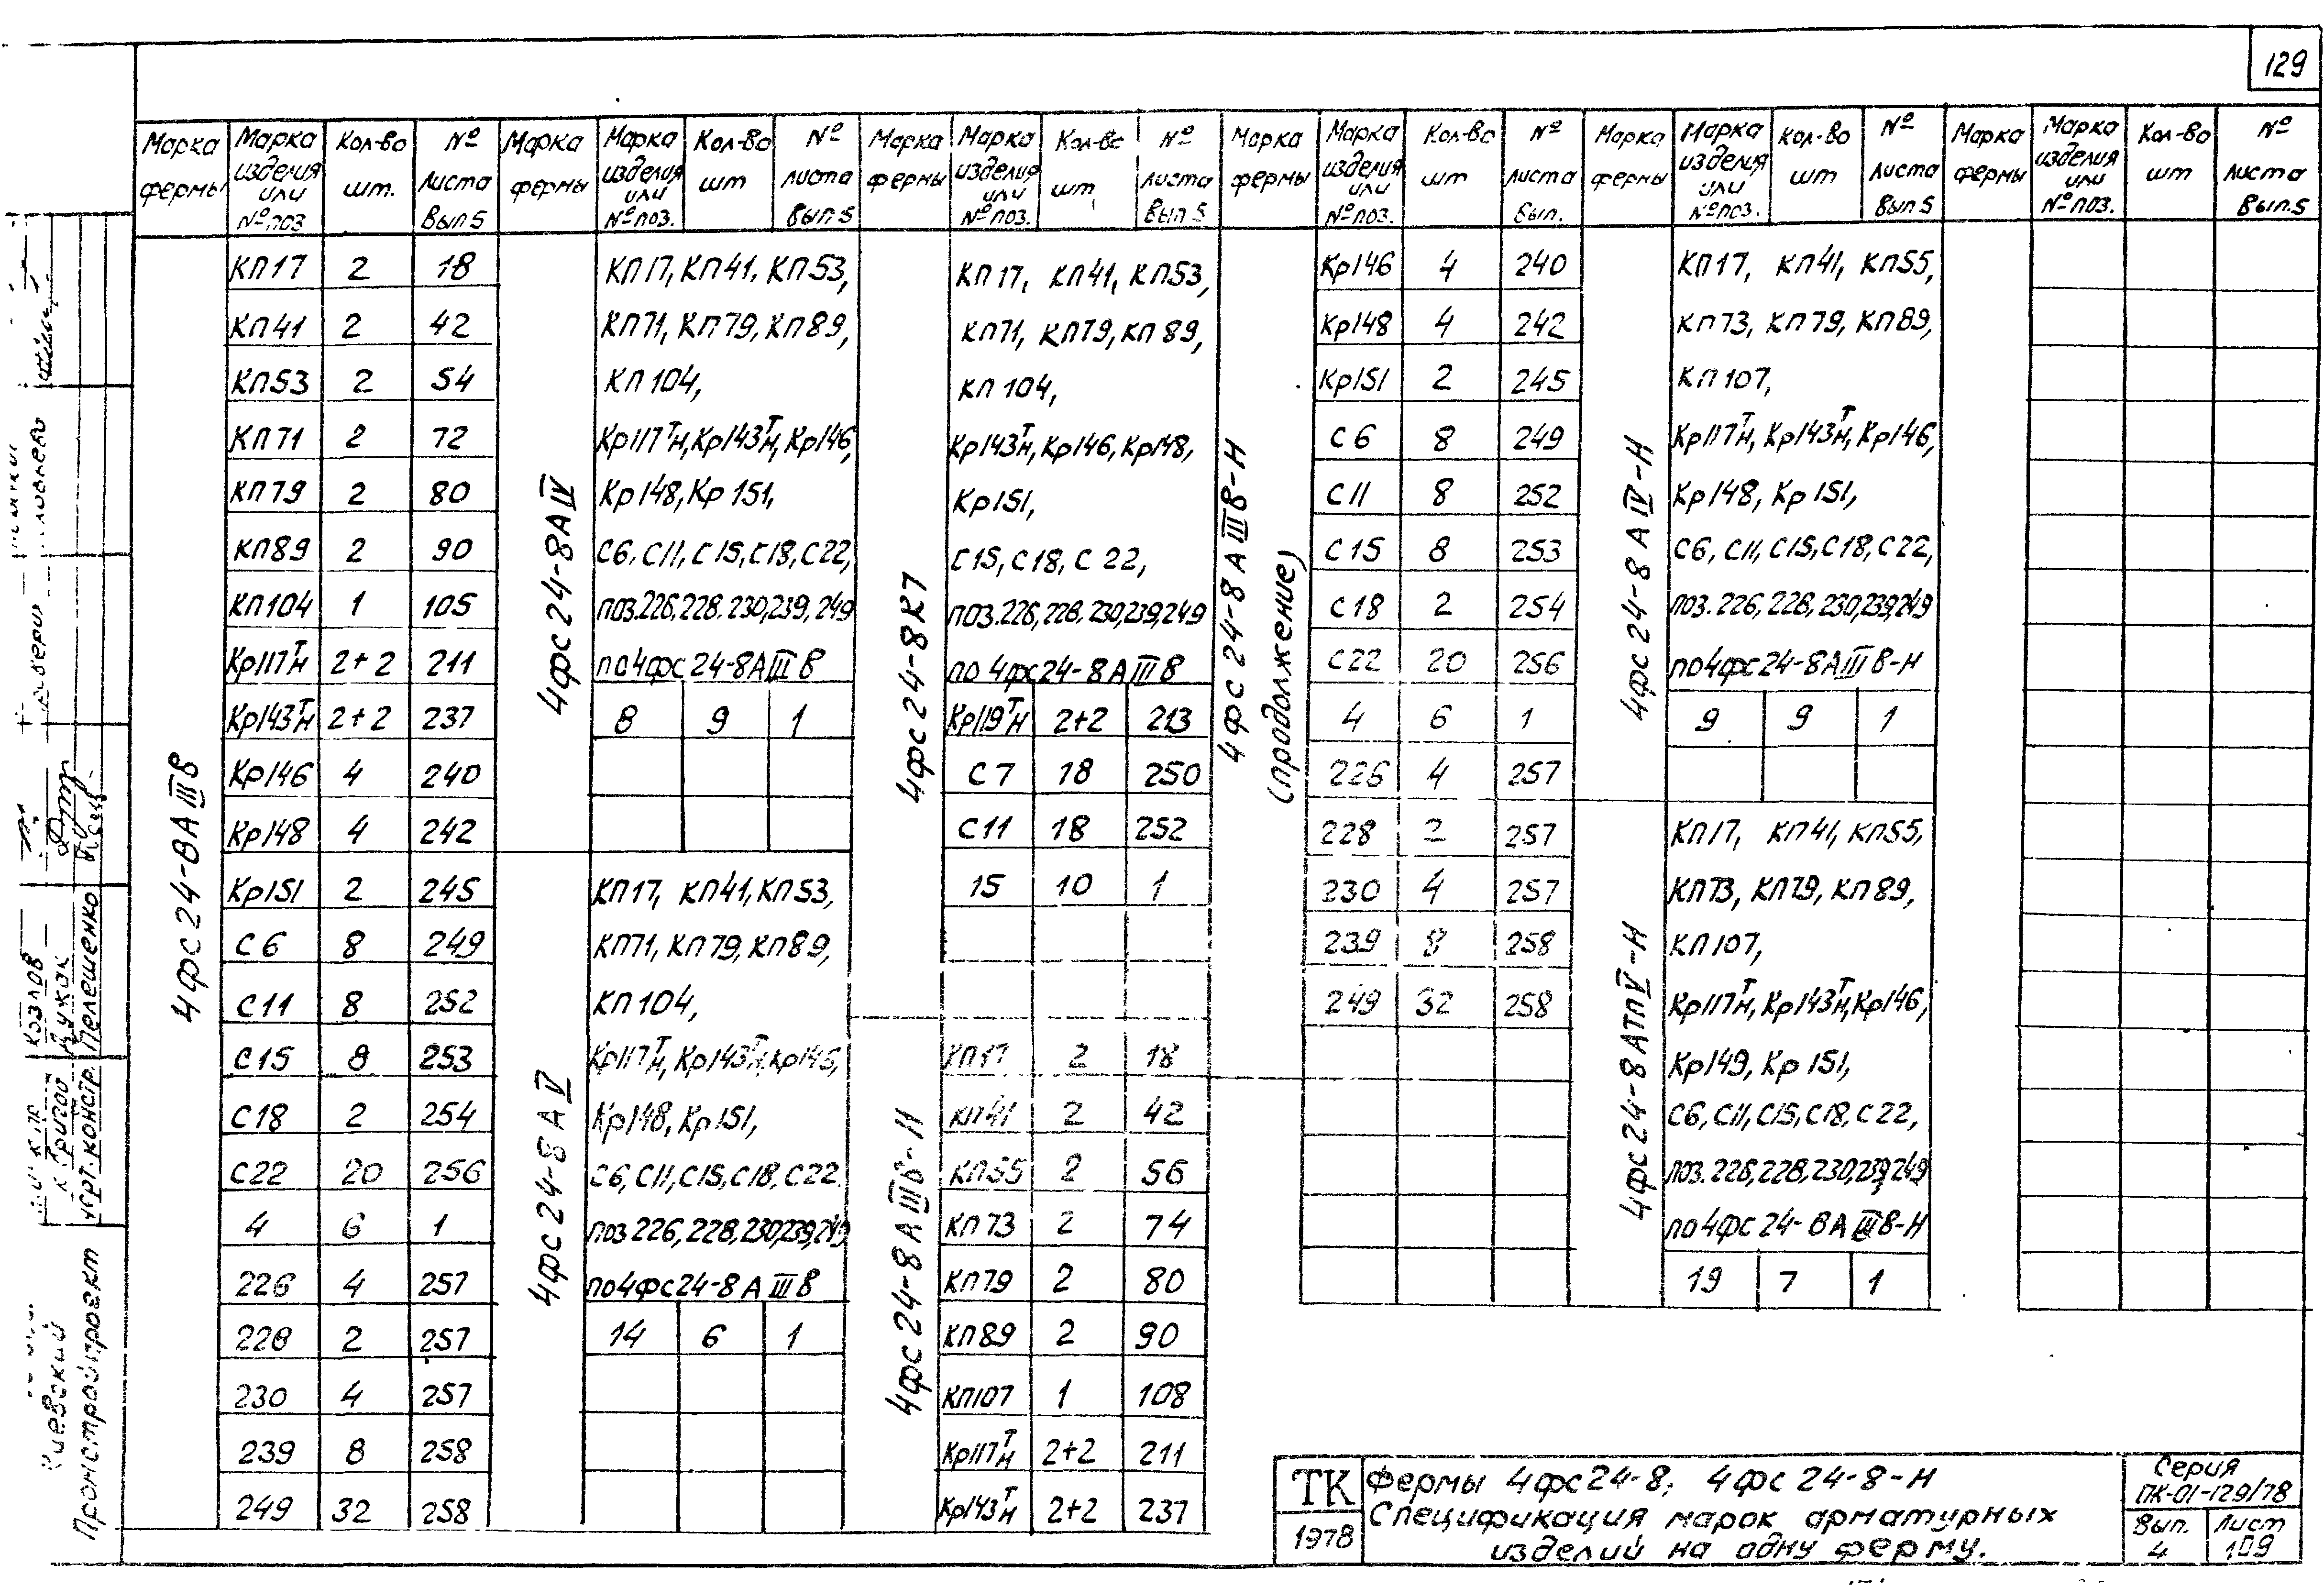 129
Марка фермы | Марка изделия или № поз | Кол-во шт. | № листа вып 5
4ФС24-8АIIIв
КП17 2 18
КП41 2 42
КП53 2 54
КП71 2 72
КП79 2 80
КП89 2 90
КП104 1 105
Кр117Тн 2+2 211
Кр143Тн 2+2 237
Кр146 4 240
Кр148 4 242
Кр151 2 245
С6 8 249
С11 8 252
С15 8 253
С18 2 254
С22 20 256
4 6 1
226 4 257
228 2 257
230 4 257
239 8 258
249 32 258
Марка фермы | Марка изделия или № поз. | Кол-во шт | № листа вып 5
4ФС24-8АIV
КП17, КП41, КП53,
КП71, КП79, КП89,
КП104,
Кр117Тн, Кр143Тн, Кр146,
Кр148, Кр151,
С6, С11, С15, С18, С22,
поз.226, 228. 230, 239, 249
по 4фс24-8АIIIв
8 9 1
4ФС24-8АV
КП17, КП41, КП53,
КП71, КП79, КП89,
КП104,
Кр117Тн, Кр143Тн, Кр146,
Кр148, Кр151,
С6, С11, С15, С18, С22.
поз 226, 228, 230, 239, 249
по 4фс24-8АIIIв
14 6 1
Марка фермы | Марка изделия или № поз. | Кол-во шт. | № листа вып 5
4ФС24-8К7
КП17, КП41, КП53,
КП71, КП79, КП89,
КП104,
Кр143Тн, Кр146, Кр148,
Кр151,
С15, С18, С22,
поз.226, 228, 230, 239, 249
по 4фс24-8АIIIв
Кр119Тн 2+2 213
С7 18 250
С11 18 252
15 10 1
4ФС24-8АIIIв-Н
КП17 2 18
КП41 2 42
КП55 2 56
КП73 2 74
КП79 2 80
КП89 2 90
КП107 1 108
Кр117Тн 2+2 211
Кр143Тн 2+2 237
Марка фермы | Марка изделия или № поз. | Кол-во шт | № листа вып.
4ФС24-8АIIIв-Н
(продолжение)
Кр146 4 240
Кр148 4 242
Кр151 2 245
С6 8 249
С11 8 252
С15 8 253
С18 2 254
С22 20 256
4 6 1
226 4 257
228 2 257
230 4 257
239 8 258
249 32 258
Марка фермы | Марка изделия или № поз. | Кол-во шт | № листа вып 5
4ФС24-8АIV-Н
КП17, КП41, КП55,
КП73, КП79, КП89,
КП107,
Кр117Тн, Кр143Тн, Кр146,
Кр148, Кр151,
С6, С11, С15, С18, С22,
поз.226, 228, 230, 239, 249
по 4фс24-8АIIIв-Н
9 9 1
4ФС24-8АТпV-Н
КП17, КП41, КП55,
КП73, КП79, КП89,
КП107,
Кр117Тн, Кр143Тн, Кр146,
Кр149, Кр151,
С6, С11, С15, С18, С22,
поз.226, 228, 230, 239, 249
по 4фс24-8АIIIв-Н
19 7 1
Марка фермы | Марка изделия или № поз. | Кол-во шт | № листа вып.5
Козлов
Пелешенко
констр.
Киевский
Промстройпроект
ТК
1978
Фермы 4фс24-8; 4фс24-8-Н
Спецификация марок арматурных
изделий на одну ферму.
Серия
ПК-01-129/78
Вып. 4
Лист 109